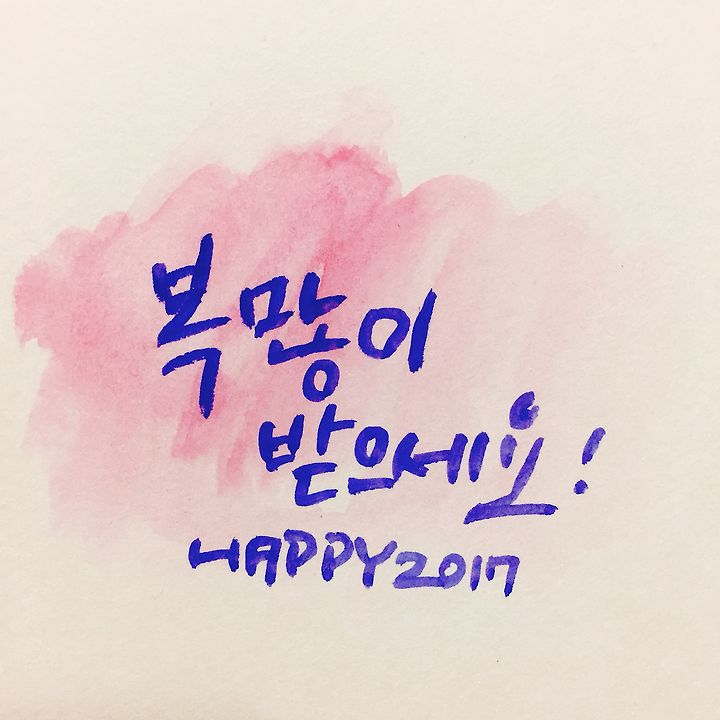 복 많이
받으세요!
HAPPY 2017